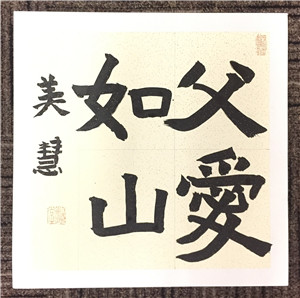 父愛
如山
美慧